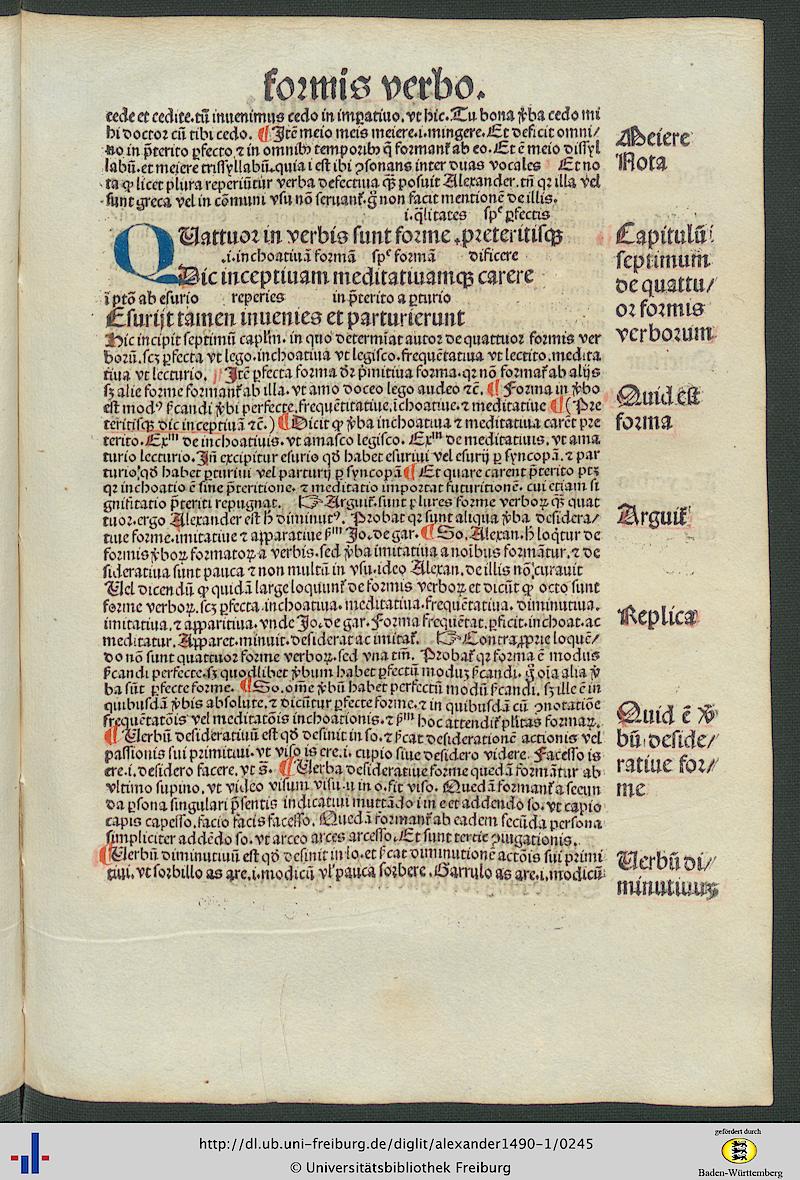 formis verbo.
cede et cedite. tū inuenimus cedo in imꝑatiuo. vt hic. Tu bona v̓ba cedo mi
hi doctor cū tibi cedo. ¶ Itē meio meis meiere .i. mingere. Et deficit omni/
no in p̄terito ꝑfecto ⁊ in omnibꝰ temporibꝰ q̄ formant̃ ab eo. Et ē meio dissyl
labū. et meiere trissyllabū. quia i est ibi ꝯsonans inter duas vocales Et no
ta ꝙ licet plura reperiūtur verba defectiua q̄̃ posuit Alexander. tn̄ qꝛ illa vel
sunt greca vel in cōmuni vsu nō seruant̃. g̊ non facit mentionē de illis.
.i. q̄litates spē ꝑfectis
QUattuor in verbis sunt forme . preteritisqꝫ
.i. inchoatiuā formā spē formā dificere
Dic inceptiuam meditatiuamqꝫ carere
ī p̄tō ab esurio reperies in p̄terito a ꝑturio
Esurijt tamen inuenies et parturierunt
Hic incipit septimū caplm̄. in quo determīat autor de quattuor formis ver
borū. scꝫ ꝑfecta vt lego. inchoatiua vt legisco. frequētatiua vt lectito. medita
tiua vt lecturio. ¶ Itē ꝑfecta forma dr̄ p̄mitiua forma. qꝛ nō format̃ ab alijs
sꝫ alie forme formant̃ ab illa. vt amo doceo lego audeo ⁊c. ¶ Forma in v̓bo
est modꝰ sc̄andi v̓bi perfecte. frequētitatiue. īchoatiue. ⁊ meditatiue ¶ (Pre
teritisqꝫ dic inceptiuā ⁊c.) ¶ Dicit ꝙ v̓ba inchoatiua ⁊ meditatiua carēt pre
terito. Exᵐ de inchoatiuis. vt amasco legisco. Exᵐ de meditatiuis. vt ama
turio lecturio. Jn̄ excipitur esurio qd̓ habet esuriui vel esurij ꝑ syncopā. ⁊ par
turio. qd̓ habet ꝑturiui vel parturij ꝑ syncopā ¶ Et quare carent p̄terito ptꝫ
qꝛ inchoatio ē sine p̄teritione. ⁊ meditatio importat futuritionē. cui etiam si
gnificatio p̄teriti repugnat. ☞ Arguit̃. sunt plures forme verboꝝ q̄̃ quat
tuor. ergo Alexander est h̓ diminutꝰ. Probat̃ qꝛ sunt aliqua v̓ba desidera/
tiue forme. imitatiue ⁊ apparatiue ẜm Jo. de gar. ¶ So. Alexan. h̓ loq̄tur de
formis v̓boꝝ formatoꝝ a verbis. sed v̓ba imitatiua a noībus formātur. ⁊ de
sideratiua sunt pauca ⁊ non multū in vsu. ideo Alexan. de illis nō curauit
Uel dicendū ꝙ quidā large loquunt̃ de formis verboꝝ et dicūt ꝙ octo sunt
forme verboꝝ. scꝫ ꝑfecta. inchoatiua. meditatiua. frequētatiua. diminutiua.
imitatiua. ⁊ apparitiua. vnde Jo. de gar. Forma frequētat. ꝑficit. inchoat. ac
meditatur. Apparet. minuit. desiderat ac imitat̃. ☞ Contra. ꝓprie loquē/
do nō sunt quattuor forme verboꝝ. sed vna tm̄. Probat̃ qꝛ forma ē modus
sc̄andi perfecte. sꝫ quodlibet v̓bum habet ꝑfectū moduꝫ sc̄andi. g̊ oīa alia v̓
ba sūt ꝑfecte forme. ¶ So. om̄e v̓bū habet perfectū modū sc̄andi. sꝫ ille ē in
quibusdā v̓bis absolute. ⁊ dicūtur ꝑfecte forme. ⁊ in quibusdā cū ꝯnotatiōe
frequētatōis vel meditatōis inchoationis. ⁊ ẜm hoc attendit̃ pl̄itas formaꝝ.
¶ Uerbū desideratiuū est qd̓ desinit in so. ⁊ sc̄at desiderationē actionis vel
passionis sui primitiui. vt viso is ere .i. cupio siue desidero videre. Facesso is
ere .i. desidero facere. vt s̄. ¶ Uerba desideratiue forme quedā formātur ab
vltimo supino. vt video visum visu. u in o. fit viso. Quedā formant̃ a secun
da ꝑsona singulari p̄sentis indicatiui muttādo i in e et addendo so. vt capio
capis capesso. facio facis facesso. Quedā formant̃ ab eadem secūda persona
simpliciter addēdo so. vt arceo arces arcesso. Et sunt tertie ꝯiugationis.
¶ Uerbū diminutiuū est qd̓ desinit in lo. et sc̄at diminutionē actōis sui primi
tiui. vt sorbillo as are .i. modicū vl̓ pauca sorbere. Garrulo as are .i. modicū
Meiere
Nota
Capitulū
septimum
de quattu/
or formis
verborum
Quid est
forma
Arguit̃
Replica
Quid ē v̓
bū deside/
ratiue for/
me
Uerbū di/
minutiuuꝫ
http://dl.ub.uni-freiburg.de/diglit/alexander1490-1/0245
© Universitätsbibliothek Freiburg
gefördert durch
Baden-Württemberg